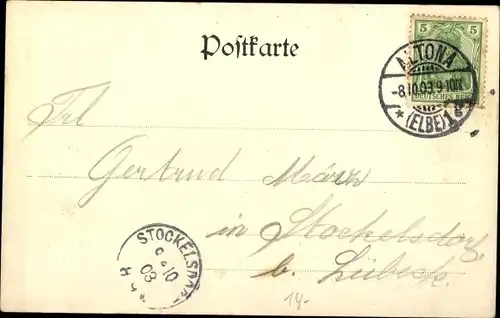 Postkarte
5 5
ALTONA
-8.10.03.9-10
DEUTSCHES REICH
* (ELBE) 1
Frl
Gertrud
in Stockelsdorf
b. Lübeck.
STOCKELSDORF
10
03
14-